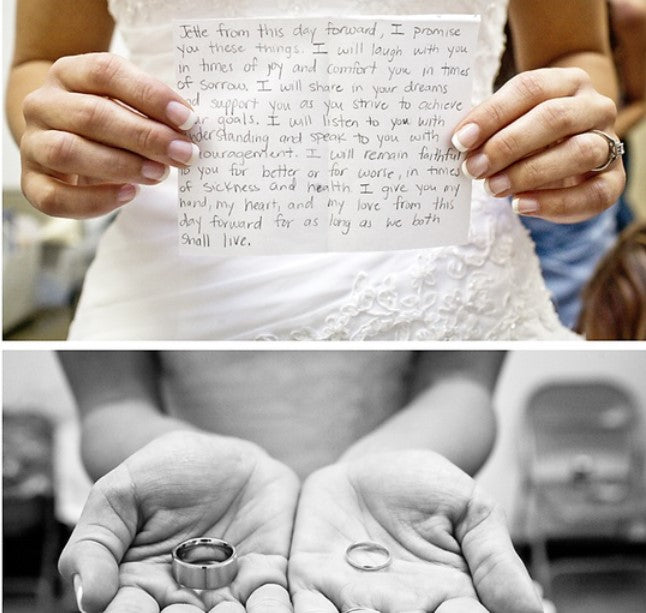 Jette from this day forward, I promise
you these things. I will laugh with you
in times of joy and comfort you in times
of sorrow. I will share in your dreams
and support you as you strive to achieve
your goals. I will listen to you with
understanding and speak to you with
encouragement. I will remain faithful
to you for better or for worse, in times
of sickness and health. I give you my
hand, my heart, and my love from this
day forward for as long as we both
shall live.